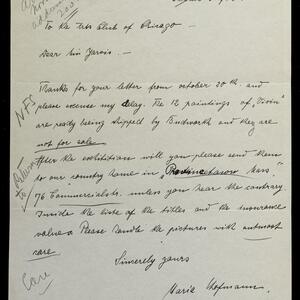 To the Arts Club of Chicago -
Dear Miss Jarvis -
Thanks for your letter from october 20th. and
please excuse my delay. The 12 paintings of
are ready being shipped by Budworth and they are
not for sale
NFS
After the exhibitions will you please send them
to our country home in Provincetown Mass."
76 Commercialstr. unless you hear the contrary
Inside the liste of the titles and the insurance
values Please handle the pictures with outmost
care
Care
Sincerely yours
Maria Hofmann.